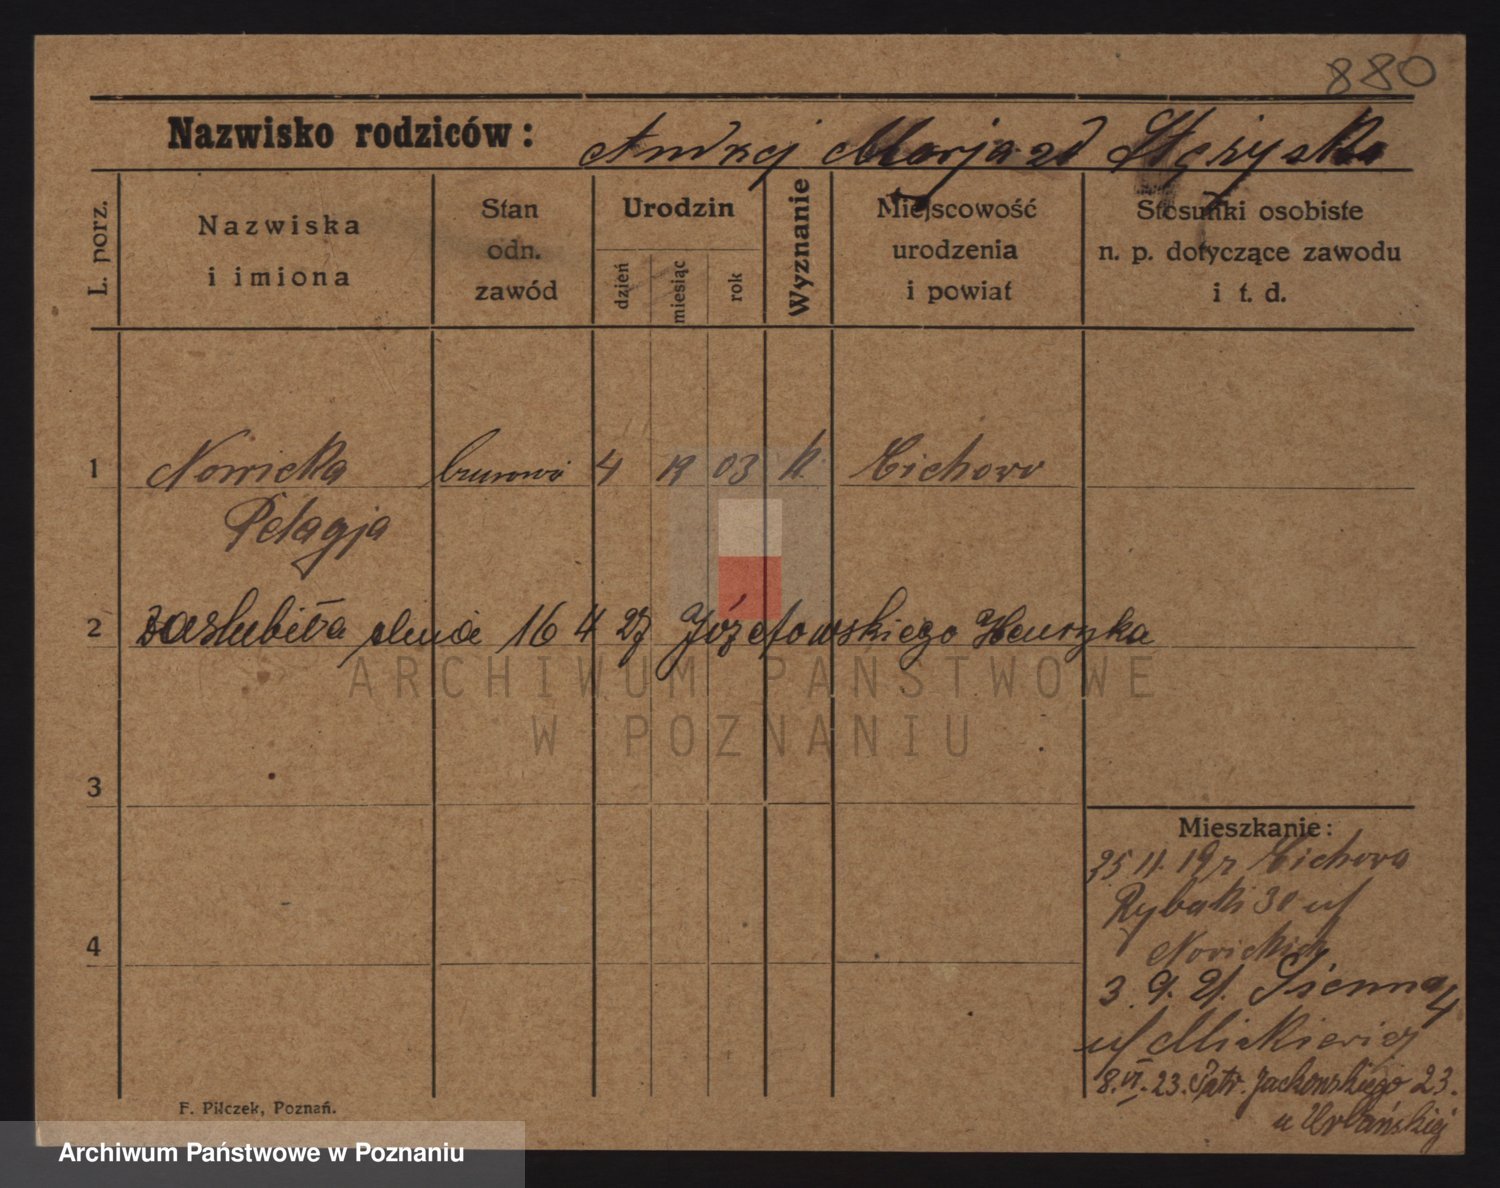 880
Nazwisko rodziców: Andrzej Marja zd Stężyska
L. porz.
Nazwiska
i imiona
Stan
odn.
zawód
Urodzin
dzień
miesiąc
rok
Wyznanie
Miejscowość
urodzenia
i powiat
Stosunki osobiste
n. p. dotyczące zawodu
i t. d.
1 Nowicka 4 12 03 k. Cichowo
Pelagja
2 zaslubiła dnia 16 4 27 Józefowskiego Henryka
3
4
Mieszkanie:
25 11. 19 r Cichova
Rybaki 30 uf
Novickich
3. 9. 21. Sienna 4
uf Mickiewicz
8. VI. 23. Patr. Jackowskiego 23.
u Urbańskiej
F. Pilczek, Poznań.
ARCHIWUM PAŃSTWOWE
W POZNANIU
Archiwum Państwowe w Poznaniu